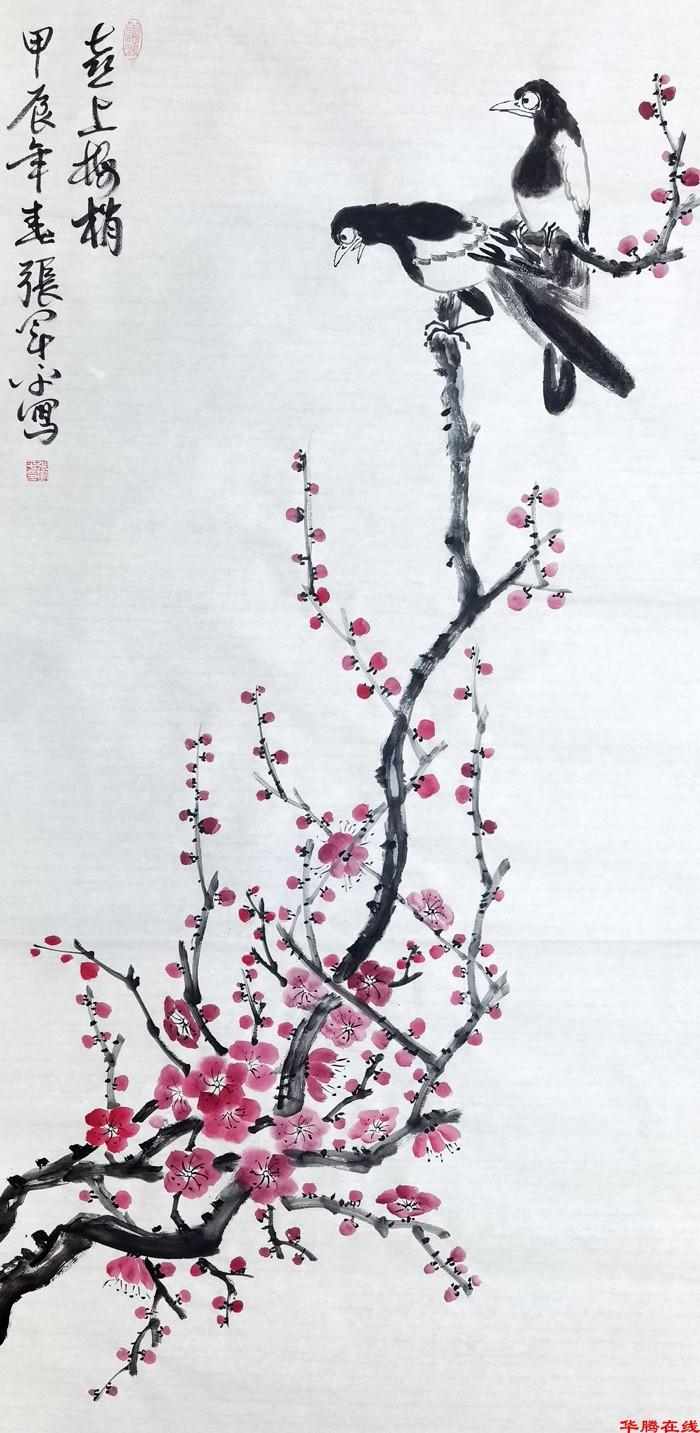 喜上梅梢
甲辰年春張军 寫
华腾在线